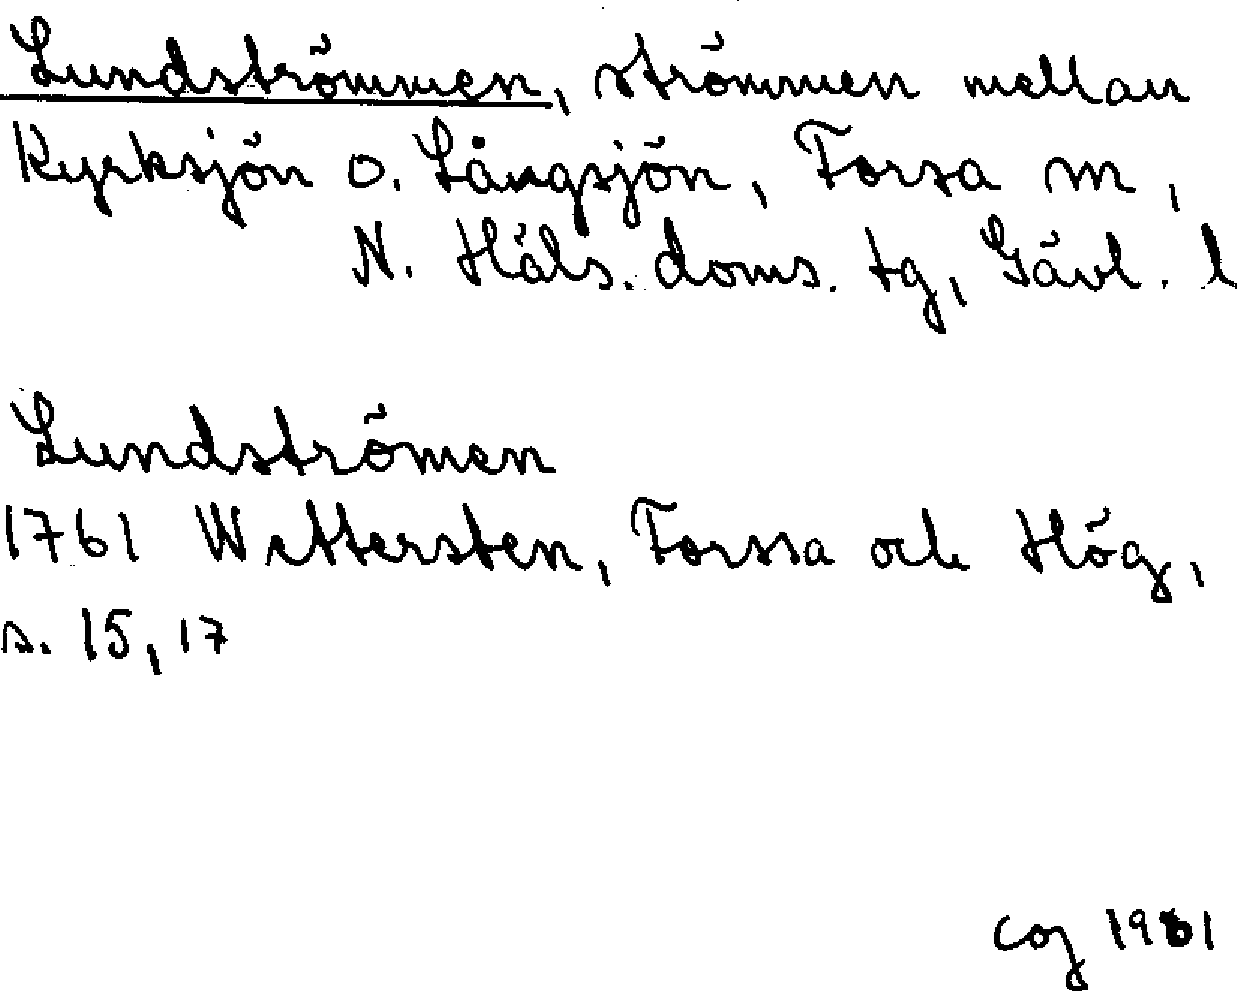 Lundströmmen, strömmen mellan
Kyrksjön o. Långsjön, Forsa m,
N. Häls. doms. tg, Gävl. l
Lundströmen
1761 Wettersten, Forssa och Hög,
s. 15, 17